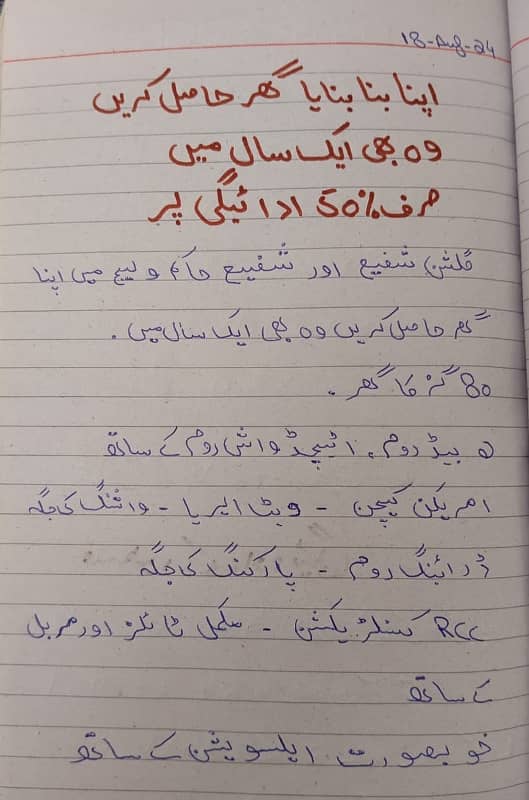 18-Aug-24
اپنا بنا بنایا گھر حاصل کریں
وہ بھی ایک سال میں
صرف 50% ادائیگی پر
گلشن شفیع اور شفیع حاکم ولیج میں اپنا
گھر حاصل کریں وہ بھی ایک سال میں.
80 گز کا گھر.
بیڈ روم, اٹیچڈ واش روم کے ساتھ
امریکن کیچن - ایریا - واشنگ کی جگہ
ڈرائنگ روم - پارکنگ کی جگہ
RCC کنسٹریکشن - مکمل ٹائلز اور مربل
کے ساتھ
خوبصورت ایلیویشن کے ساتھ